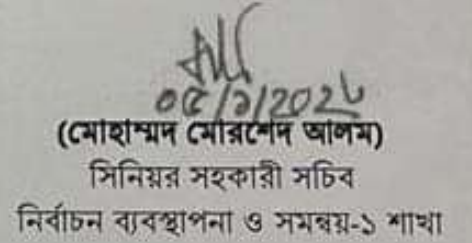 ০৫/১/2026
(মোহাম্মদ মোরশেদ আলম)
সিনিয়র সহকারী সচিব
নির্বাচন ব্যবস্থাপনা ও সমন্বয়-১ শাখা